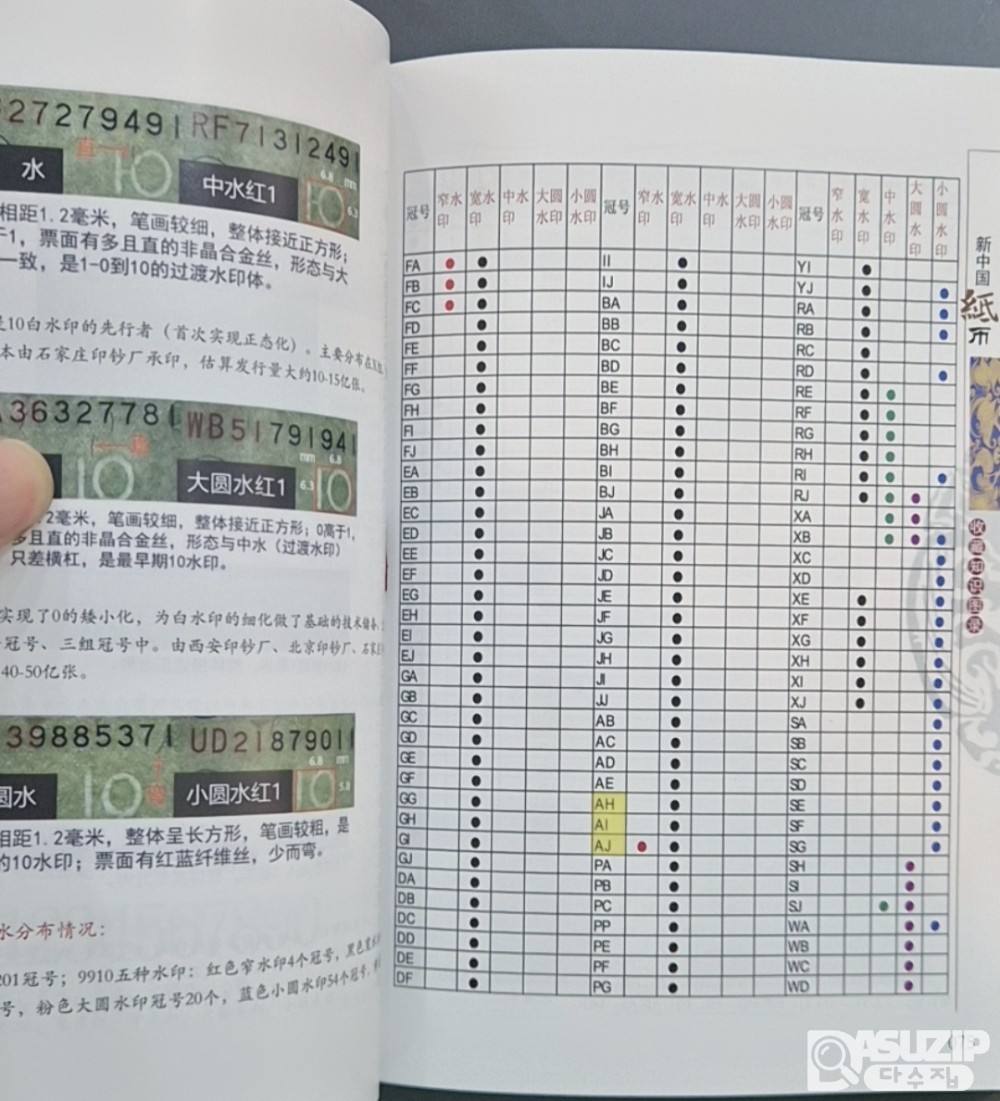 2727949 RF7131249
水 中水红1 6.8 mm
相距1.2毫米，笔画较细，整体接近正方形；
于1，票面有多且直的非晶合金丝，形态与大
一致，是1-0到10的过渡水印体。
是10白水印的先行者（首次实现正态化）。主要分布在
本由石家庄印钞厂承印，估算发行量大约10-15亿张。
3632778 WB5179194
大圆水红1 mm 6.8 6.3
2毫米，笔画较细，整体接近正方形；0高于1，
多且直的非晶合金丝，形态与中水（过渡水印）
只差横杠，是最早期10水印。
实现了0的矮小化，为白水印的细化做了基础的技术储备
冠号、三组冠号中。由西安印钞厂、北京印钞厂、石家
40-50亿张。
3988537 UD2187901
圆水 小圆水红1 6.8 mm 5.8
相距1.2毫米，整体呈长方形，笔画较粗，是
的10水印；票面有红蓝纤维丝，少而弯。
水分布情况：
201冠号；9910五种水印：红色窄水印4个冠号，黑色宽水
号，粉色大圆水印冠号20个，蓝色小圆水印54个冠号，
冠号 窄水印 宽水印 中水印 大圆水印 小圆水印 冠号 窄水印 宽水印 中水印 大圆水印 小圆水印 冠号 窄水印 宽水印 中水印 大圆水印 小圆水印
FA II YI
FB IJ YJ
FC BA RA
FD BB RB
FE BC RC
FF BD RD
FG BE RE
FH BF RF
FI BG RG
FJ BH RH
EA BI RI
EB BJ RJ
EC JA XA
ED JB XB
EE JC XC
EF JD XD
EG JE XE
EH JF XF
EI JG XG
EJ JH XH
GA JI XI
GB JJ XJ
GC AB SA
GD AC SB
GE AD SC
GF AE SD
GG AH SE
GH AI SF
GI AJ SG
GJ PA SH
DA PB SI
DB PC SJ
DC PP WA
DD PE WB
DE PF WC
DF PG WD
新中国
紙币
收藏知识图录
ASUZIP
다수집